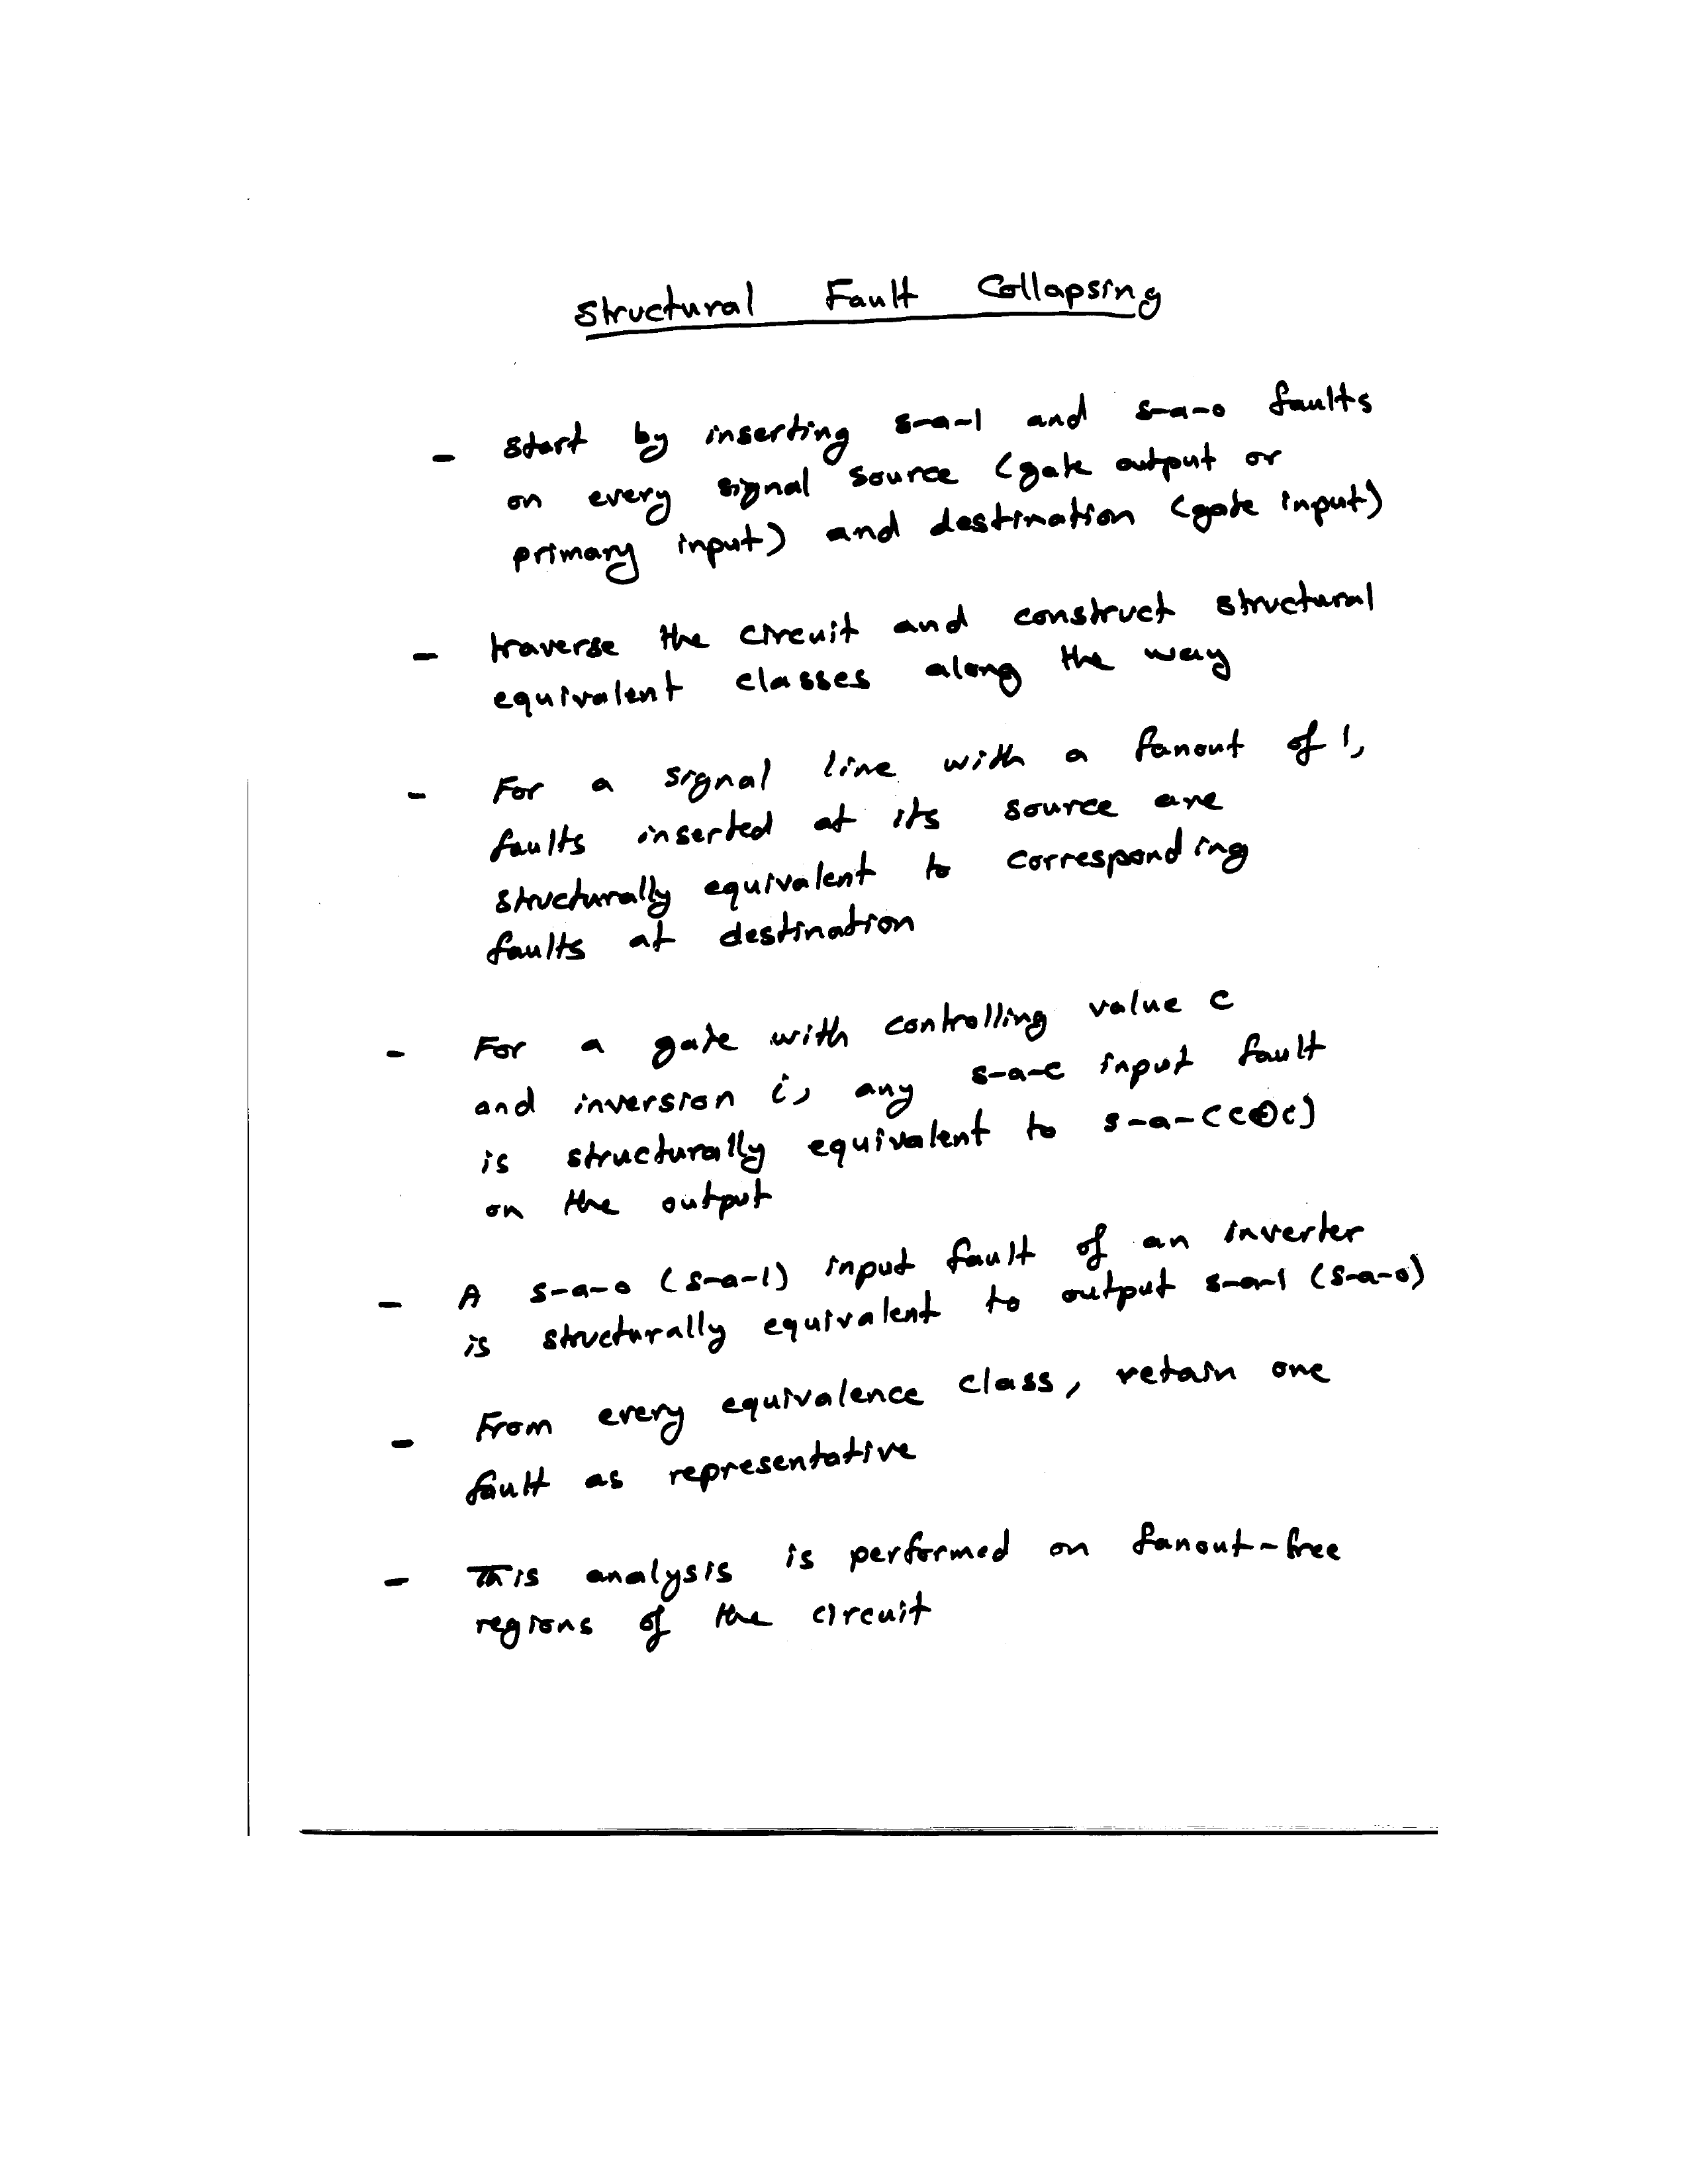 Structural Fault Collapsing
- start by inserting s-a-1 and s-a-0 faults
on every signal source (gate output or
primary input) and destination (gate input)
- traverse the circuit and construct structural
equivalent classes along the way
- For a signal line with a fanout of 1,
faults inserted at its source are
structurally equivalent to corresponding
faults at destination
- For a gate with controlling value c
and inversion i, any s-a-c input fault
is structurally equivalent to s-a-(c⊕i)
on the output
- A s-a-0 (s-a-1) input fault of an inverter
is structurally equivalent to output s-a-1 (s-a-0)
- From every equivalence class, retain one
fault as representative
- This analysis is performed on fanout-free
regions of the circuit